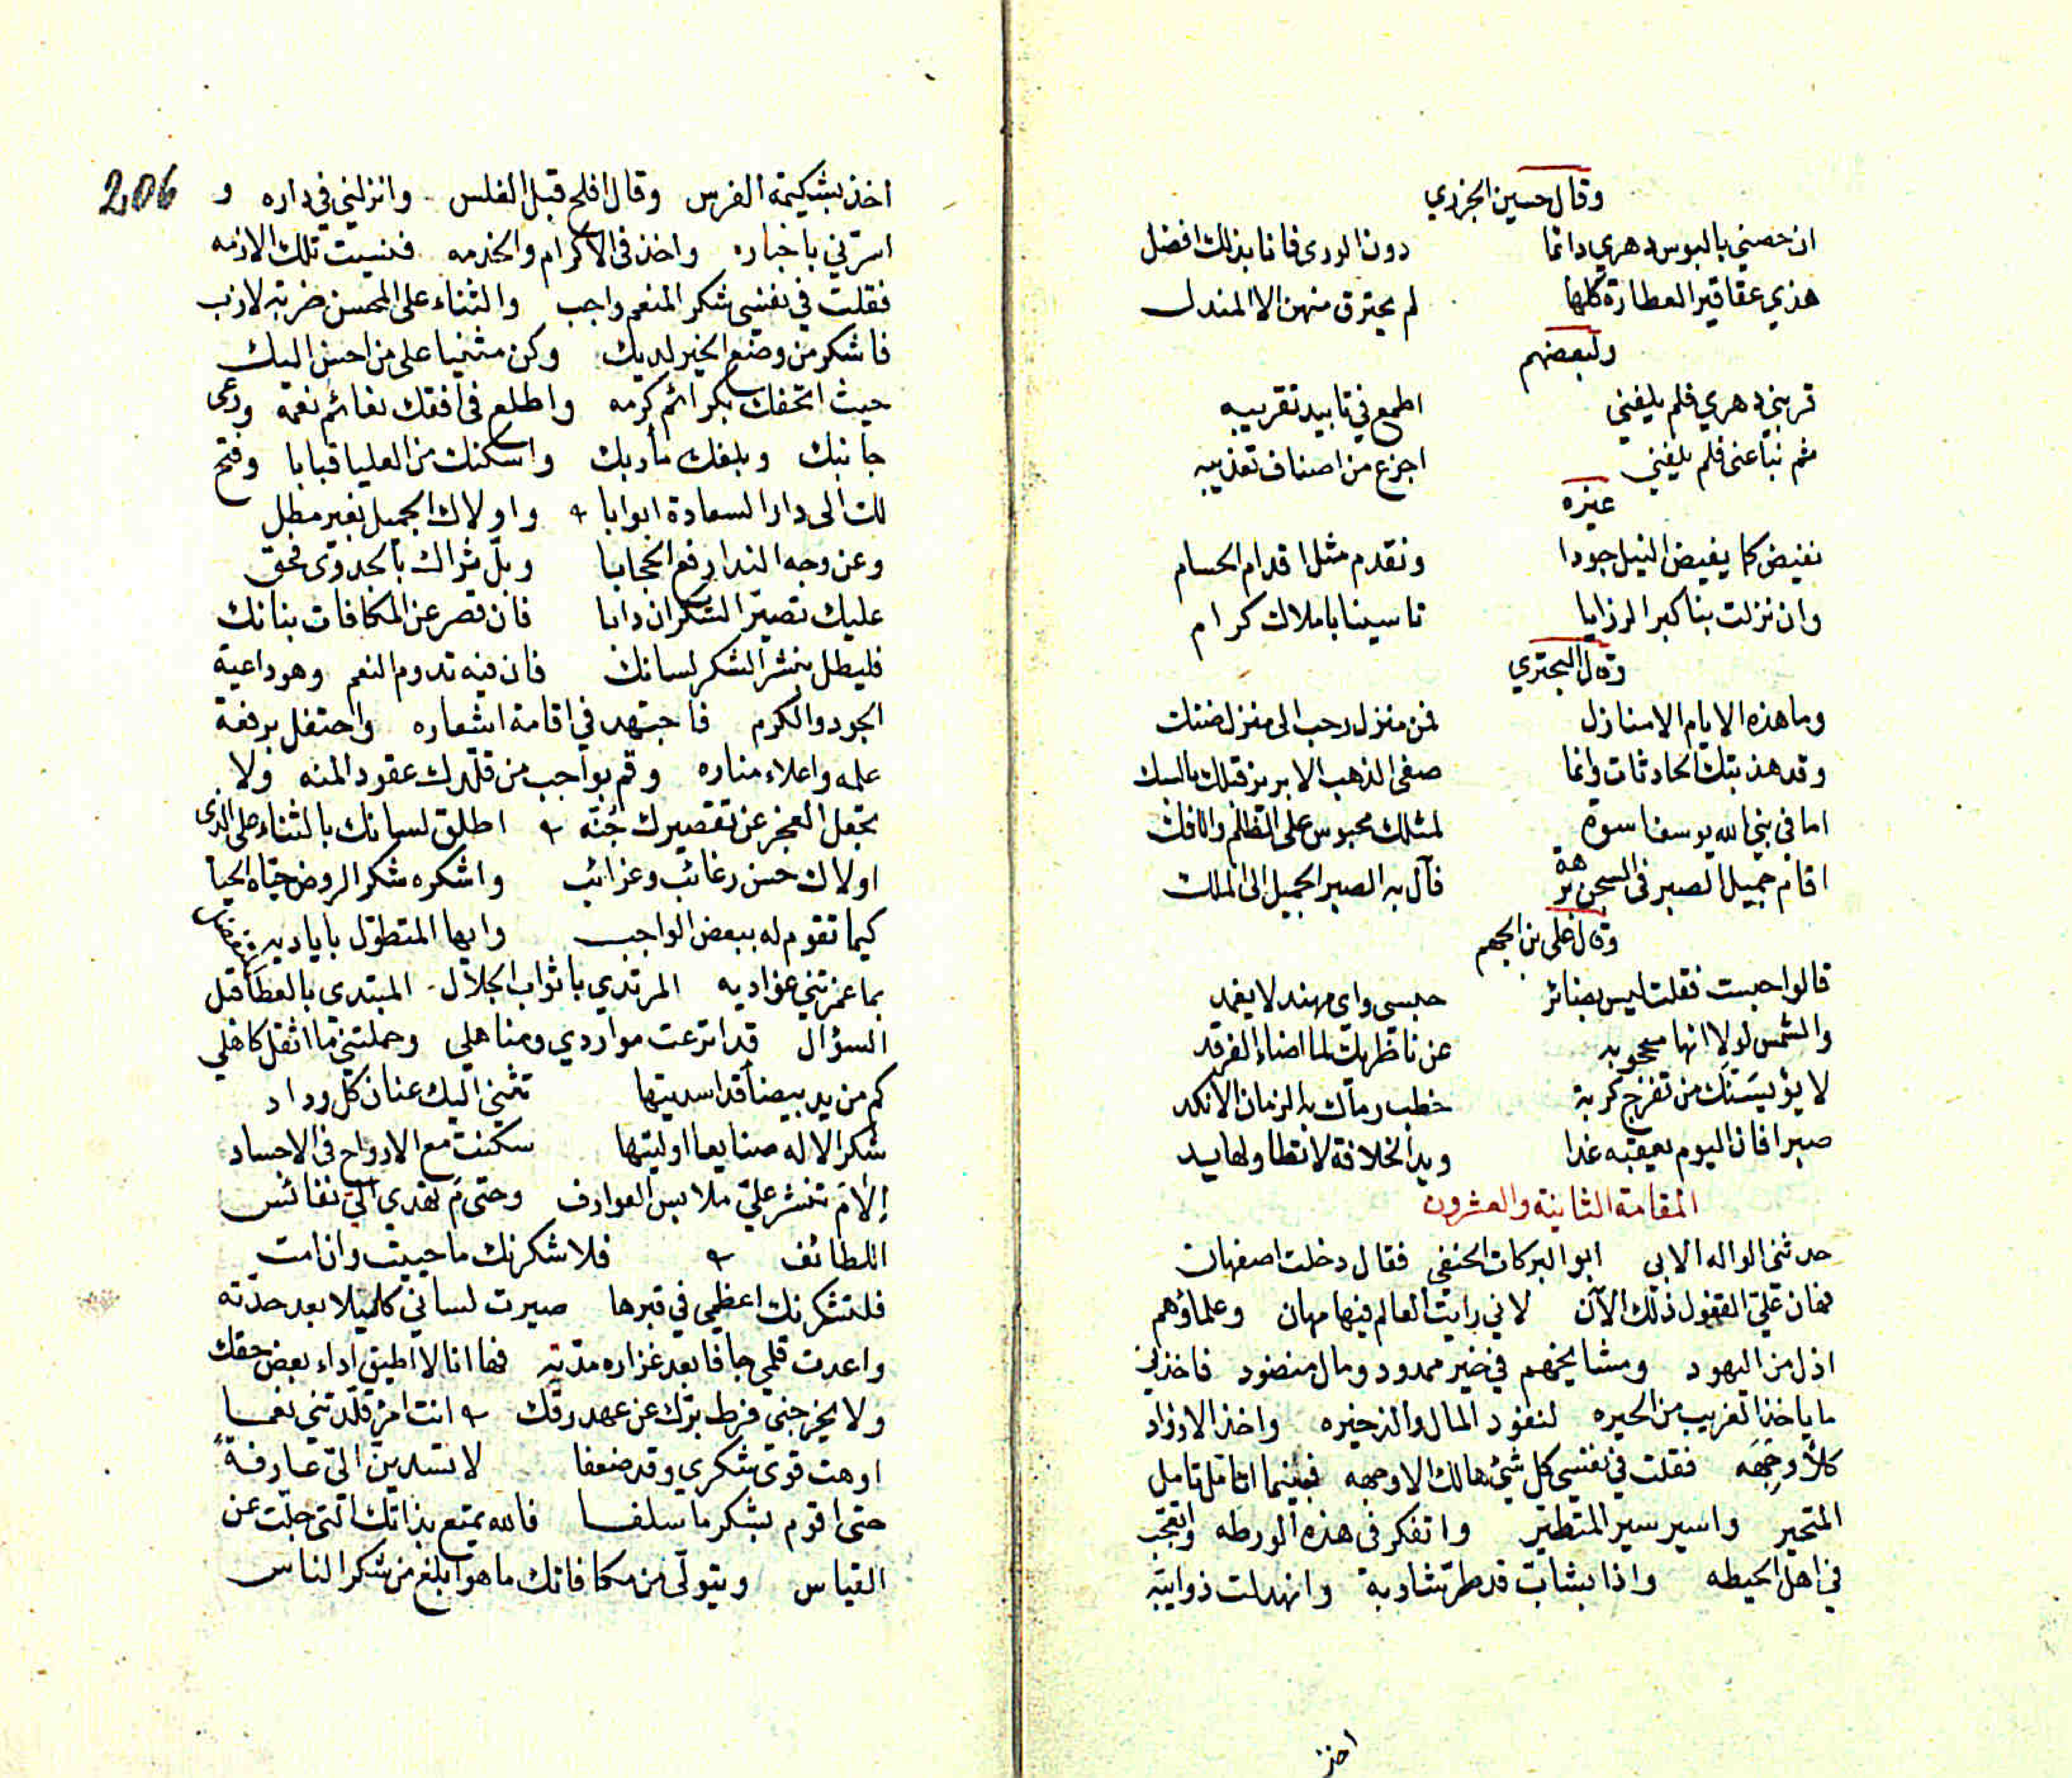 وقال حسين الجزري
ان خصني بالبوس دهري دائما دون الورى فانا بذلك افضل
هذي عقاقير العطارة كلها لم يحترق منهن الا المندل
ولبعضهم
قربني دهري فلم يلفني اطمع في تابيد تقريبه
ثم نبا عنى فلم يلفني اجزع من اصناف تعذيبه
غيره
نفيض كما يفيض النيل جودا ونقدم مثل اقدام الحسام
وان نزلت بنا كبر الرزايا تاسينا باملاك كرام
وقال البحتري
وما هذه الايام الا منازل فمن منزل رحب الى منزل ضنك
وقد هذبتك الحادثات وانما صفى الذهب الابريز قبلك بالسبك
اما في نبي الله يوسف اسوة لمثلك محبوس على الظلم والافك
اقام جميل الصبر في السجن برهة فآل به الصبر الجميل الى الملك
وقال علي بن الجهم
قالوا حبست فقلت ليس بضائر حبسى واى مهند لا يغمد
والشمس لولا انها محجوبه عن ناظريك لما اضاء الفرقد
لا يؤيسنك من تفرج كربة خطب رماك به الزمان الانكد
صبرا فان اليوم يعقبه غدا ويد الخلافة لا تطاولها يد
المقامة الثانية والعشرون
حدثنى الواله الابي ابو البركات الحنفي فقال دخلت اصفهان
فهان علي القفول ذلك الآن لاني رايت العالم فيها مهان وعلماؤهم
اذل من اليهود ومشايخهم في خير ممدود ومال منضود فاخذني
ما ياخذ الغريب من الحيره لنفود المال والذخيره واخذ الاوزاد
كلا وجهه فقلت في نفسي كل شئ هالك الا وجهه فبينما اتامل تامل
المتحير واسير سير المتطير واتفكر في هذه الورطه واتعجب
في اهل الحيطه واذا بشاب قد طر شاربه وانهدلت ذوايبه
اخذ
206
اخذ بشكيمة الفرس وقال افلح قبل الغلس وانزلني في داره و
اسرني باخباره واخذ في الاكرام والخدمه فنسيت تلك الازمه
فقلت في نفسى شكر المنعم واجب والثناء على المحسن ضربة لازب
فاشكر من وضع الخير لديك وكن مثنيا على من احسن اليك
حيث اتحفك بكرائم كرمه واطلع في افقك نعائم نعمه ورعى
جانبك وبلغك مأربك واسكنك من العليا قبابا وفتح
لك الى دار السعادة ابوابا واولاك الجميل بغير مطل
وعن وجه الندا رفع الحجابا وبل ثراك بالجدوى فحق
عليك تصير الشكران دابا فان قصر عن المكافات بنانك
فليطل بنشر الشكر لسانك فان فيه تدوم النعم وهو داعية
الجود والكرم فاجتهد في اقامة اشعاره واحتفل برفعة
علمه واعلاء مناره وقم بواجب من قلدك عقود المنه ولا
تجعل العجز عن تقصيرك جنه اطلق لسانك بالثناء على الذى
اولاك حسن رغائب وغرائب واشكره شكر الروض حياه الحيا
كيما تقوم له ببعض الواجب وايها المتطول باياديه
بما غمرتني غواديه المرتدي باثواب الجلال المبتدي بالعطا قبل
السؤال قد اترعت مواردي ومناهلي وحملتني ما اثقل كاهلي
كم من يد بيضا قد اسديتها تثني اليك عنان كل وداد
شكر الاله صنايعا اوليتها سكنت مع الارواح في الاجساد
إلام تنشر علي ملابس العوارف وحتى م تهدي الي نفائس
اللطائف فلا شكرنك ما حييت وان امت
فلتشكرنك اعظمي في قبرها صيرت لساني كليلا بعد حدته
واعدت قلمي جافا بعد غزاره مدته فها انا لا اطيق اداء بعض حقك
ولا يخرجني فرط برك عن عهد رقك انت امرؤ قلدتني نعما
اوهت قوى شكري وقد ضعفا لا تسدين الي عارفة
حتى اقوم بشكر ما سلفا فالله يمتع بذاتك التي جلت عن
القياس ويتولى من مكافاتك ما هو ابلغ من شكر الناس